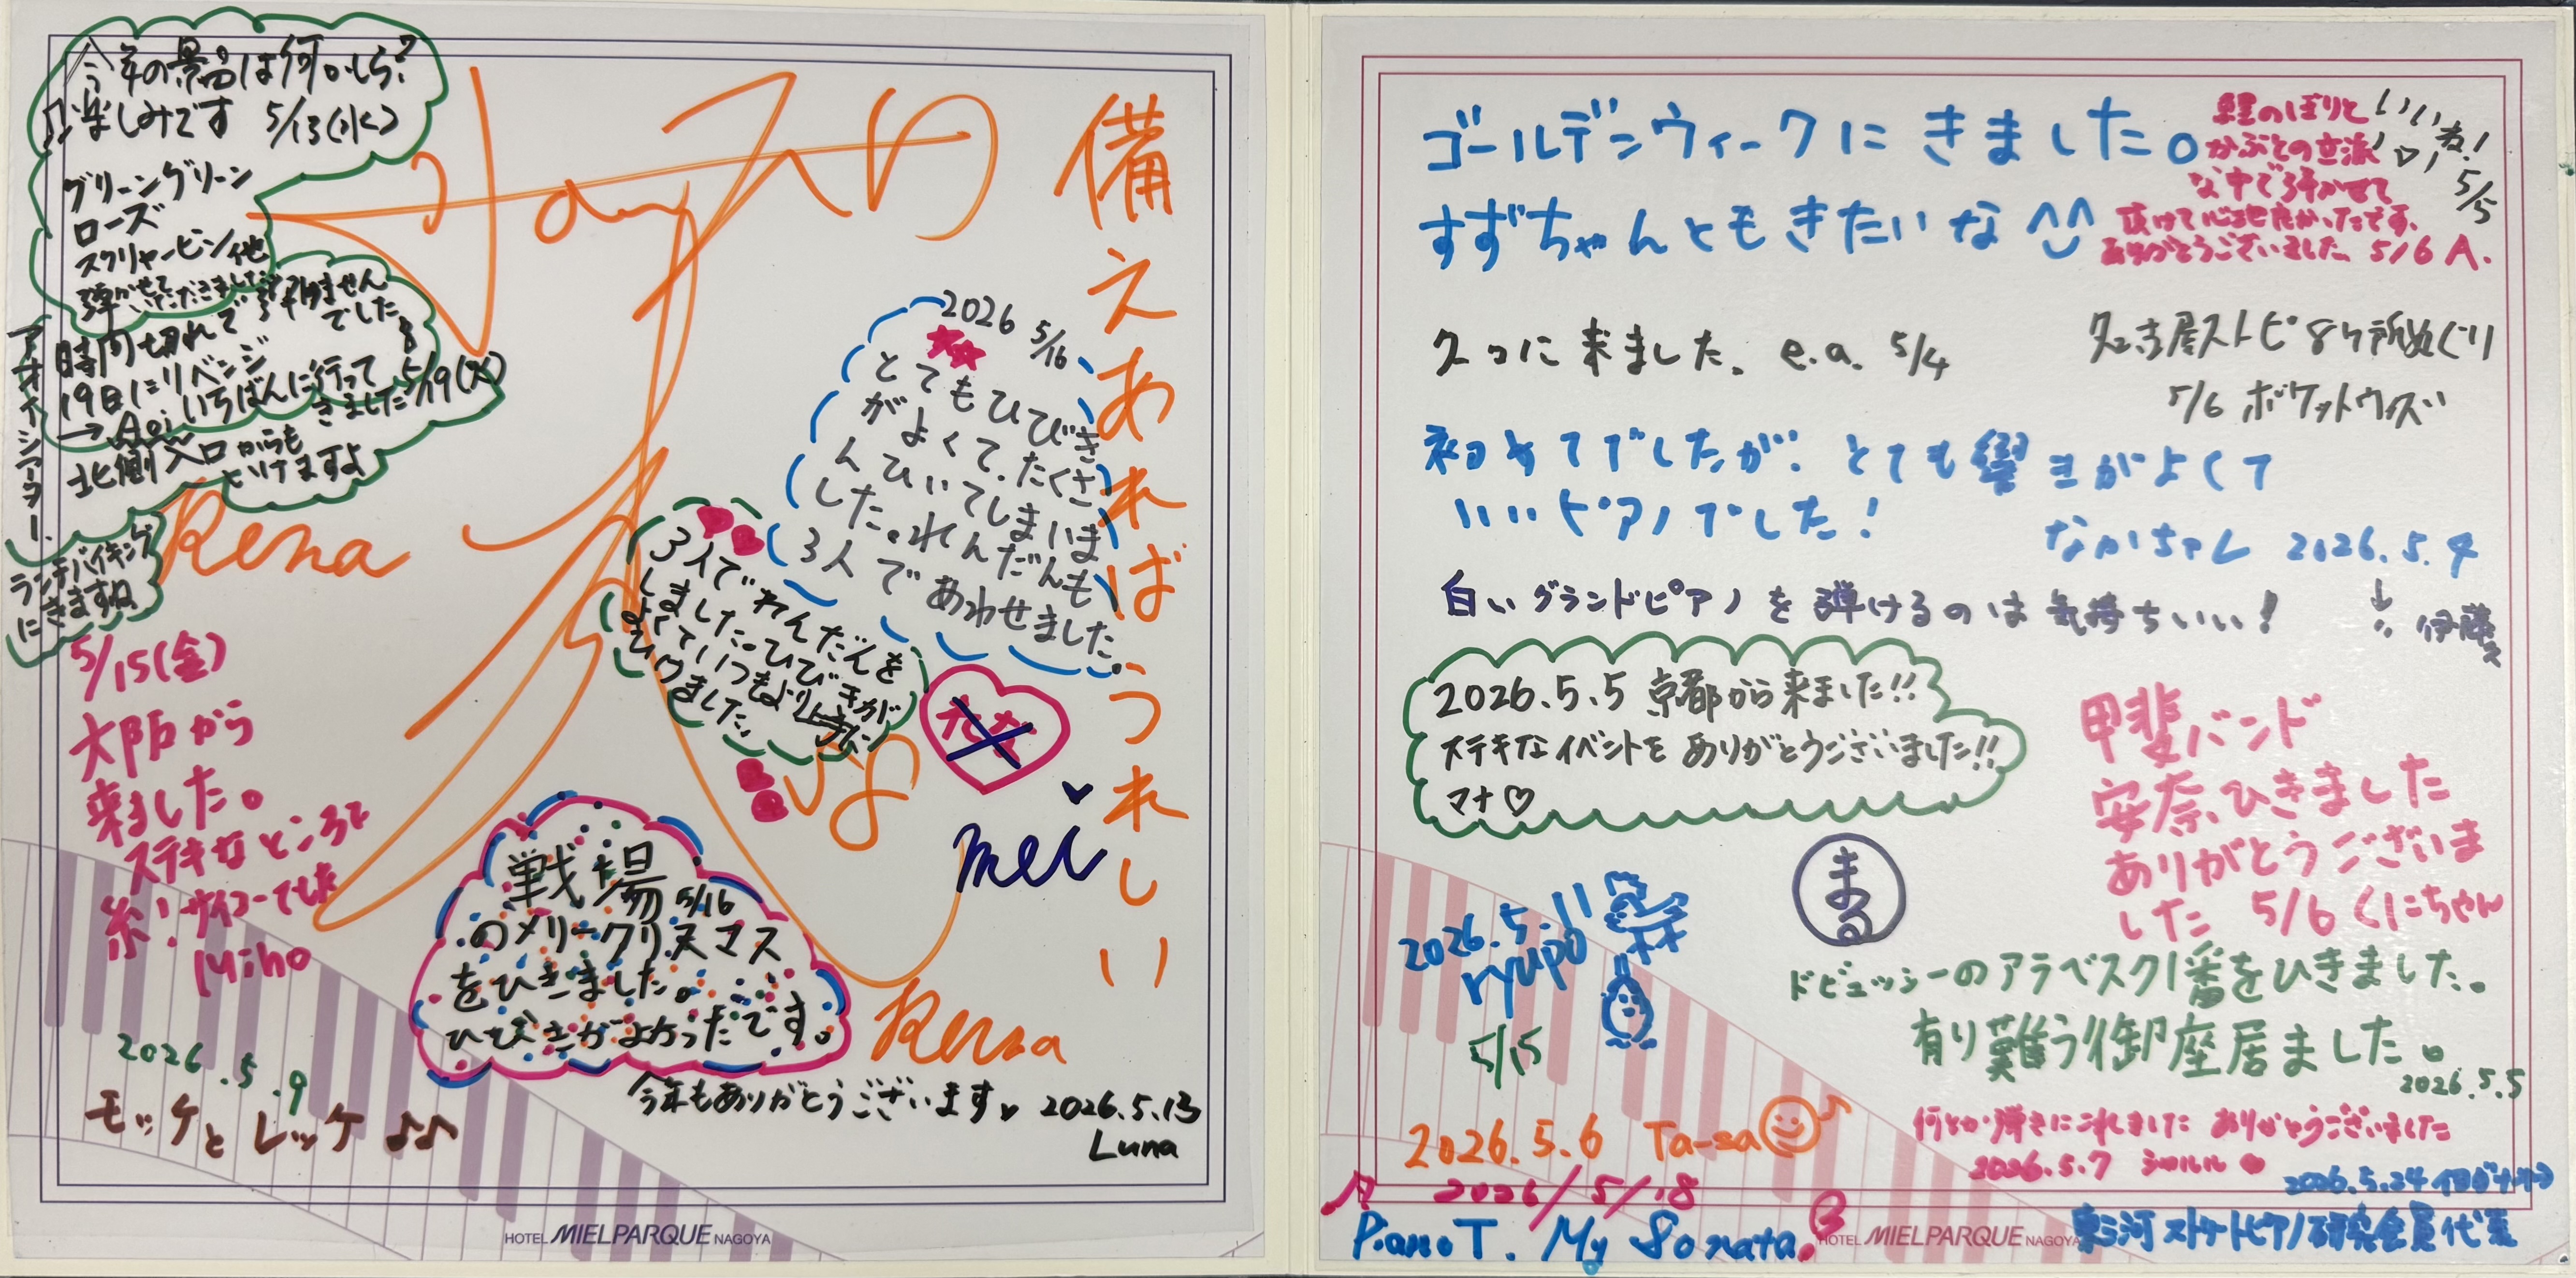 今年の景品は何かしら?
楽しみです 5/13(水)
グリーングリーン
ローズ
スクリャービン他
弾かせて
いただきました
時間切れで弾けません
でした
19日にリベンジ
いちばんに行って
きました 5/19(火)
→Aoi
北側入口からも
いけますよ
アオイシアター
ランチバイキング
にきますね
Rena
備えあればうれしい
2026 5/16
とてもひびき
がよくて、たくさ
んひいてしまいま
した。れんだんも
3人であわせました。
3人でれんだんを
しました。ひびきが
よくていつもより上手に
ひけました。
mei
5/15(金)
大阪から
来ました。
ステキなところで
糸!サイコーでした
Miho
戦場 5/16
のメリークリスマス
をひきました。
ひびきがよかったです。
Rena
2026.5.9
モッケとレッケ♪♪
今年もありがとうございます 2026.5.13
Luna
HOTEL MIELPARQUE NAGOYA
ゴールデンウィークにきました。
すずちゃんともきたいな^^
鯉のぼりと
かぶとの立派
な中で弾かせて
頂けて心地良かったです。
ありがとうございました 5/6 A.
いいね!
5/5
2コに来ました。 e.a. 5/4
名古屋ストピ8ヶ所めぐり
5/6 ポケットウィズ
初めてでしたが、とても響きがよくて
いいピアノでした!
なかちゃん 2026.5.4
↓
白いグランドピアノを弾けるのは気持ちいい!
伊藤
2026.5.5 京都から来ました!!
ステキなイベントをありがとうございました!!
マナ♡
甲斐バンド
安奈、ひきました
ありがとうございま
した 5/6 くにちゃん
まる
2026.5.11
ryupo
5/15
ドビュッシーのアラベスク1番をひきました。
有り難う御座居ました。
2026.5.5
2026.5.6 Ta-sa
何とか弾きにこれました ありがとうございました
2026.5.7 シャルル
2026/5/18
Piano T. My Sonata
2026.5.24
東三河ストリートピアノ研究会員代表
HOTEL MIELPARQUE NAGOYA